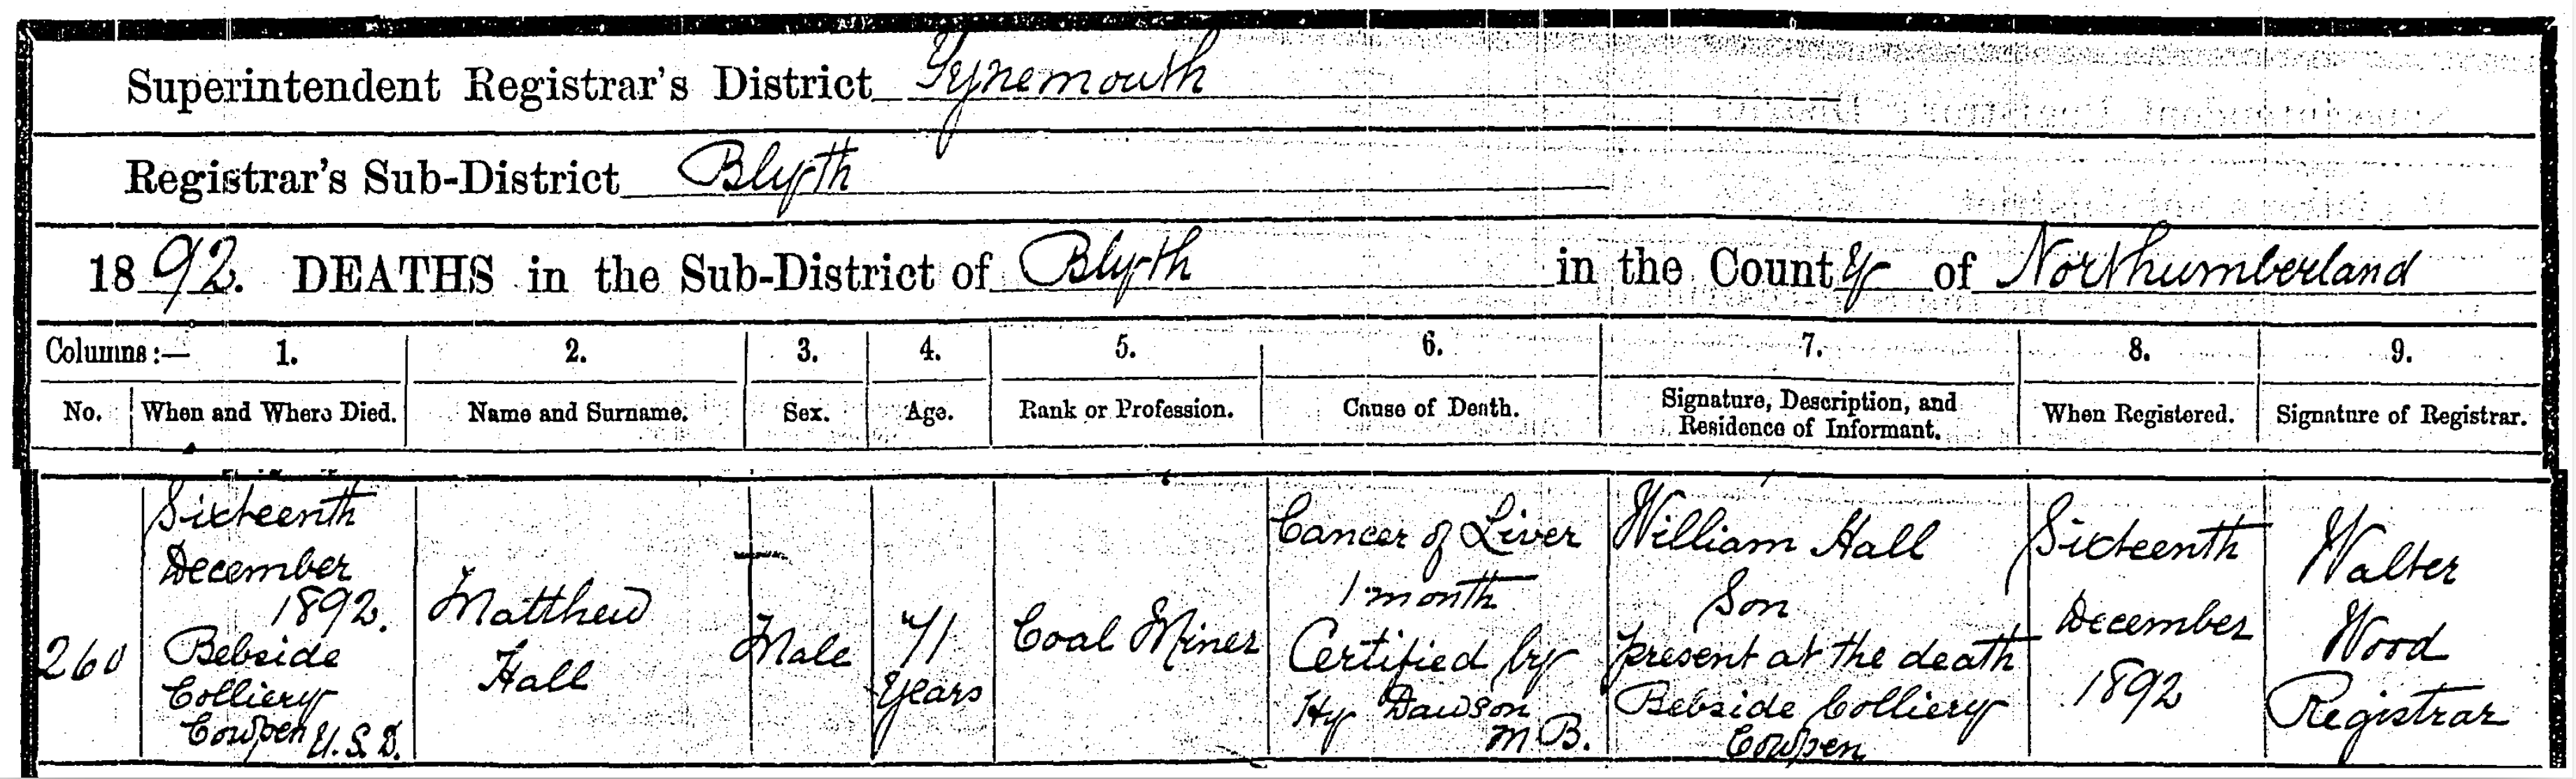 Superintendent Registrar's District Tynemouth
Registrar's Sub-District Blyth
1892. DEATHS in the Sub-District of Blyth in the County of Northumberland
Columns:— 1. 2. 3. 4. 5. 6. 7. 8. 9.
No. When and Where Died. Name and Surname. Sex. Age. Rank or Profession. Cause of Death. Signature, Description, and Residence of Informant. When Registered. Signature of Registrar.
260
Sixteenth
December
1892.
Bebside
Colliery
Cowpen U.S.D.
Matthew
Hall
Male
71
Years
Coal Miner
Cancer of Liver
1 month
Certified by
Hy Dawson
M B.
William Hall
Son
present at the death
Bebside Colliery
Cowpen
Sixteenth
December
1892
Walter
Wood
Registrar